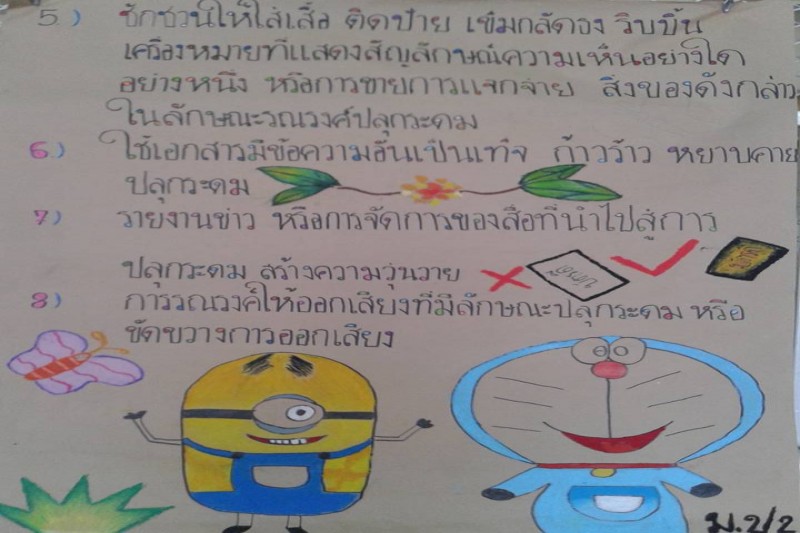 5) ชักชวนให้ใส่เสื้อ ติดป้าย เข็มกลัดธง ริบบิ้น
เครื่องหมายที่แสดงสัญลักษณ์ความเห็นอย่างใด
อย่างหนึ่ง หรือการขายการแจกจ่าย สิ่งของดังกล่าว
ในลักษณะรณรงค์ปลุกระดม
6) ใช้เอกสารมีข้อความอันเป็นเท็จ ก้าวร้าว หยาบคาย
ปลุกระดม
7) รายงานข่าว หรือการจัดการของสื่อที่นำไปสู่การ
ปลุกระดม สร้างความวุ่นวาย
8) การรณรงค์ให้ออกเสียงที่มีลักษณะปลุกระดม หรือ
ขัดขวางการออกเสียง
ม.2/2